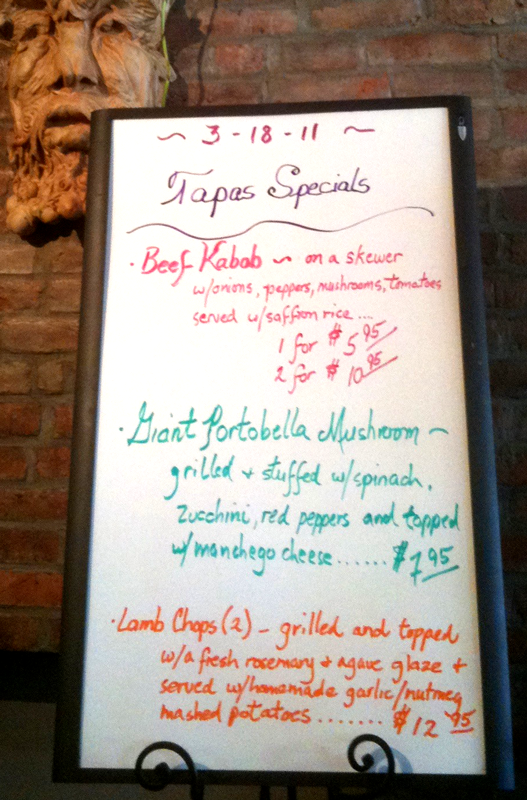 ~ 3-18-11 ~
Tapas Specials
· Beef Kabob ~ on a skewer
w/onions, peppers, mushrooms, tomatoes
served w/saffron rice...
1 for $5.95
2 for $10.95
· Giant Portobella Mushroom ~
grilled + stuffed w/spinach,
zucchini, red peppers and topped
w/manchego cheese...... $7.95
· Lamb Chops (2) - grilled and topped
w/a fresh rosemary + agave glaze +
served w/homemade garlic/nutmeg
mashed potatoes....... $12.95